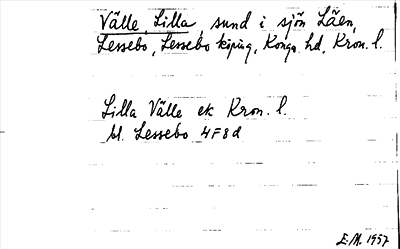 Välle, Lilla, sund i sjön Läen,
Lessebo, Lessebo köping, Konga hd, Kron. l.
Lilla Välle ek Kron. l.
bl. Lessebo 4F8d
E.M. 1957